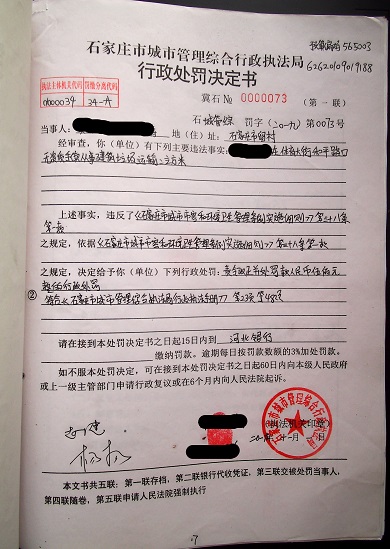 政策编码 565003
石家庄市城市管理综合行政执法局
62620109019188
行政处罚决定书
执法主体机关代码 罚缴分离代码
0600034 34-A
冀石 № 0000073 (第一联)
石 城管综 罚字(二0一九)第0073号
当事人: 地(住)址: 石家庄市留村
经审查,你(单位)有下列主要违法事实: 在体育大街和平路口
无资质
建筑垃圾运输 立方米
上述事实,违反了《石家庄市城市市容和环境卫生管理条例实施细则》第二十八条
第一款
之规定,依据《石家庄市城市市容和环境卫生管理条例实施细则》第二十八条第一款
之规定,决定给予你(单位)下列行政处罚: 责令改正并处罚款人民币伍佰元
整的行政处罚
②
符合《石家庄市城市管理综合执法局行政执法手册》第23项 第48项
请在接到本处罚决定书之日起15日内到 河北银行
缴纳罚款。逾期每日按罚款数额的3%加处罚款。
如不服本处罚决定,可在接到本处罚决定书之日起60日内向本级人民政府
或上一级主管部门申请行政复议或在6个月内向人民法院起诉。
石家庄市城市管理综合行政执法局
(执法机关印章)
本文书共五联:第一联存档,第二联银行代收凭证,第三联交被处罚当事人,
第四联随卷,第五联申请人民法院强制执行